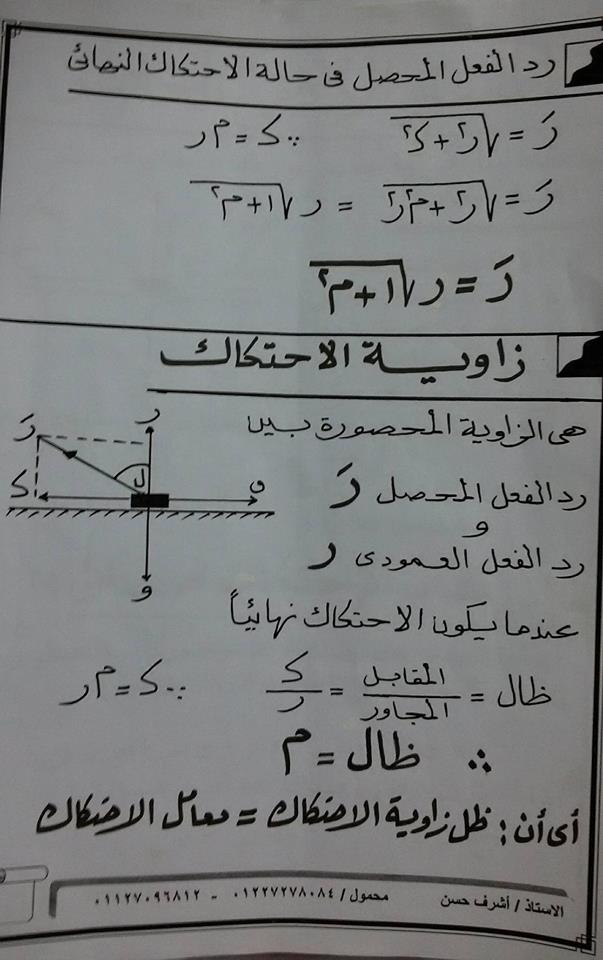 رد الفعل المحصل فى حالة الاحتكاك النهائى
رَ = √(ر٢ + ح٢) ∵ ح = م ر
رَ = √(ر٢ + م٢ر٢) = ر √(١ + م٢)
رَ = ر √(١ + م٢)
زاوية الاحتكاك
هى الزاوية المحصورة بين
رد الفعل المحصل رَ
و
رد الفعل العمودى ر
عندما يكون الاحتكاك نهائياً
ر
رَ
ل
ح
ق
و
ظا ل = المقابل / المجاور = ح / ر ∵ ح = م ر
∴ ظا ل = م
أى أن : ظل زاوية الاحتكاك = معامل الاحتكاك
الاستاذ / أشرف حسن محمول / ٠١٢٢٧٢٧٨٠٨٤ - ٠١١٢٧٠٩٦٨١٢